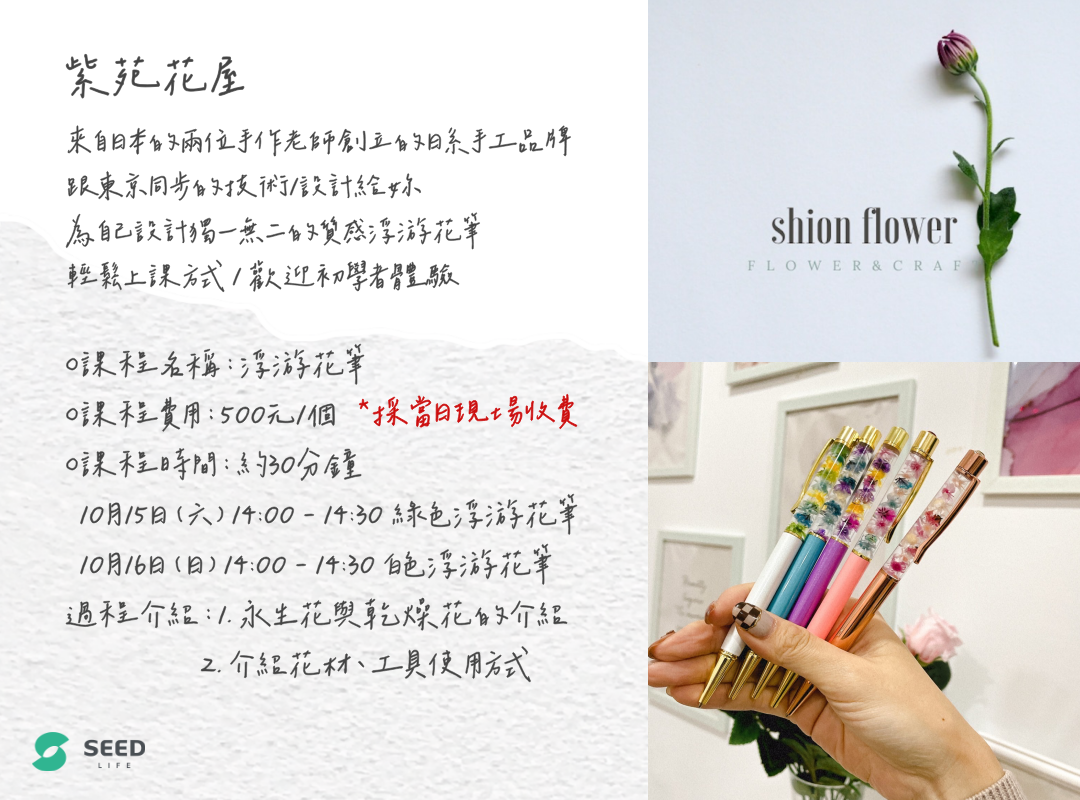 紫苑花屋
來自日本的兩位手作老師創立的日系手工品牌
跟東京同步的技術/設計給妳
為自己設計獨一無二的質感浮游花筆
輕鬆上課方式 / 歡迎初學者體驗
o課程名稱:浮游花筆
o課程費用:500元/1個 *採當日現場收費
o課程時間:約30分鐘
10月15日(六) 14:00 - 14:30 綠色浮游花筆
10月16日(日) 14:00 - 14:30 白色浮游花筆
過程介紹:1. 永生花與乾燥花的介紹
2. 介紹花材、工具使用方式
SEED
LIFE
shion flower
FLOWER&CRAF